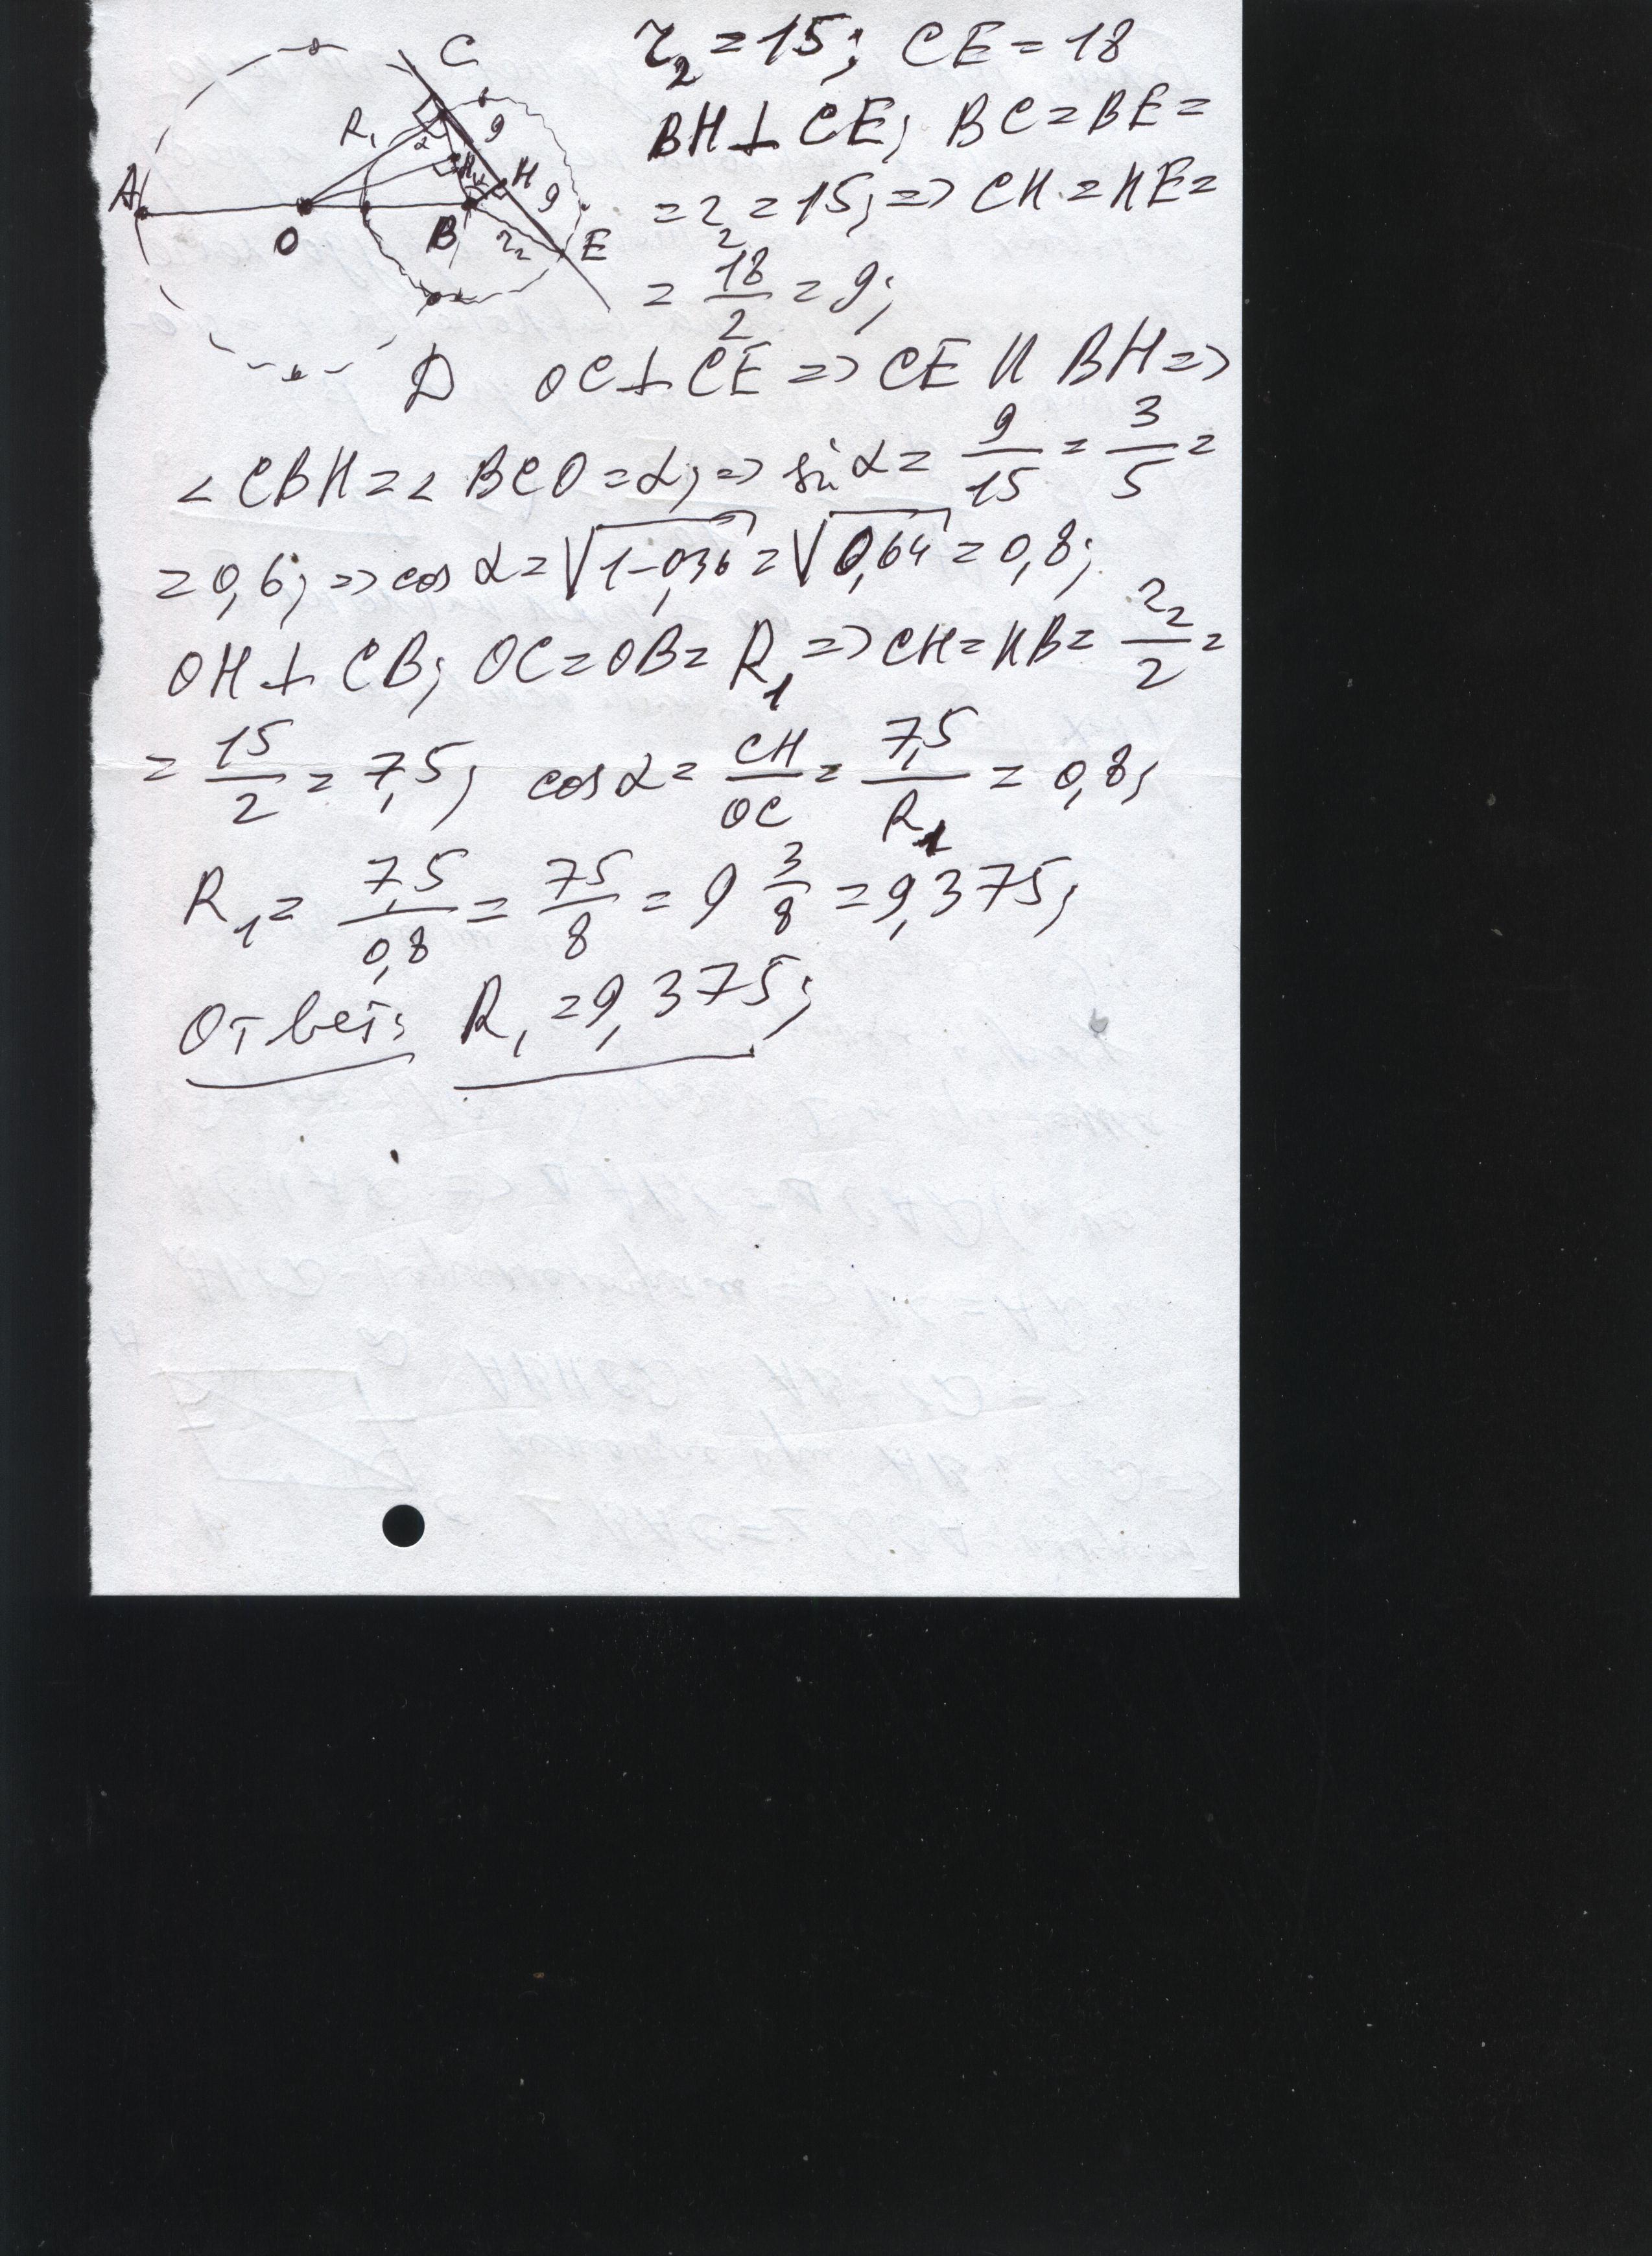 r₂ = 15; CE = 18
BH ⊥ CE; BC = BE =
= r₂ = 15; => CH = HE =
= 18/2 = 9;
C
R₁
α
9
H
H₁
9
A
O
B
r₂
E
D
OC ⊥ CE => CE || BH =>
∠ CBH = ∠ BCO = α; => sin α = 9/15 = 3/5 =
= 0,6; => cos α = √1-0,36 = √0,64 = 0,8;
OH ⊥ CB; OC = OB = R₁ => CH = HB = r₂/2 =
= 15/2 = 7,5; cos α = CH/OC = 7,5/R₁ = 0,8;
R₁ = 7,5/0,8 = 75/8 = 9 3/8 = 9,375;
Ответ: R₁ = 9,375;